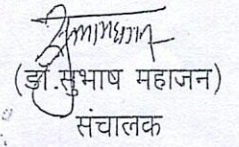 (डॉ.सुभाष महाजन)
संचालक